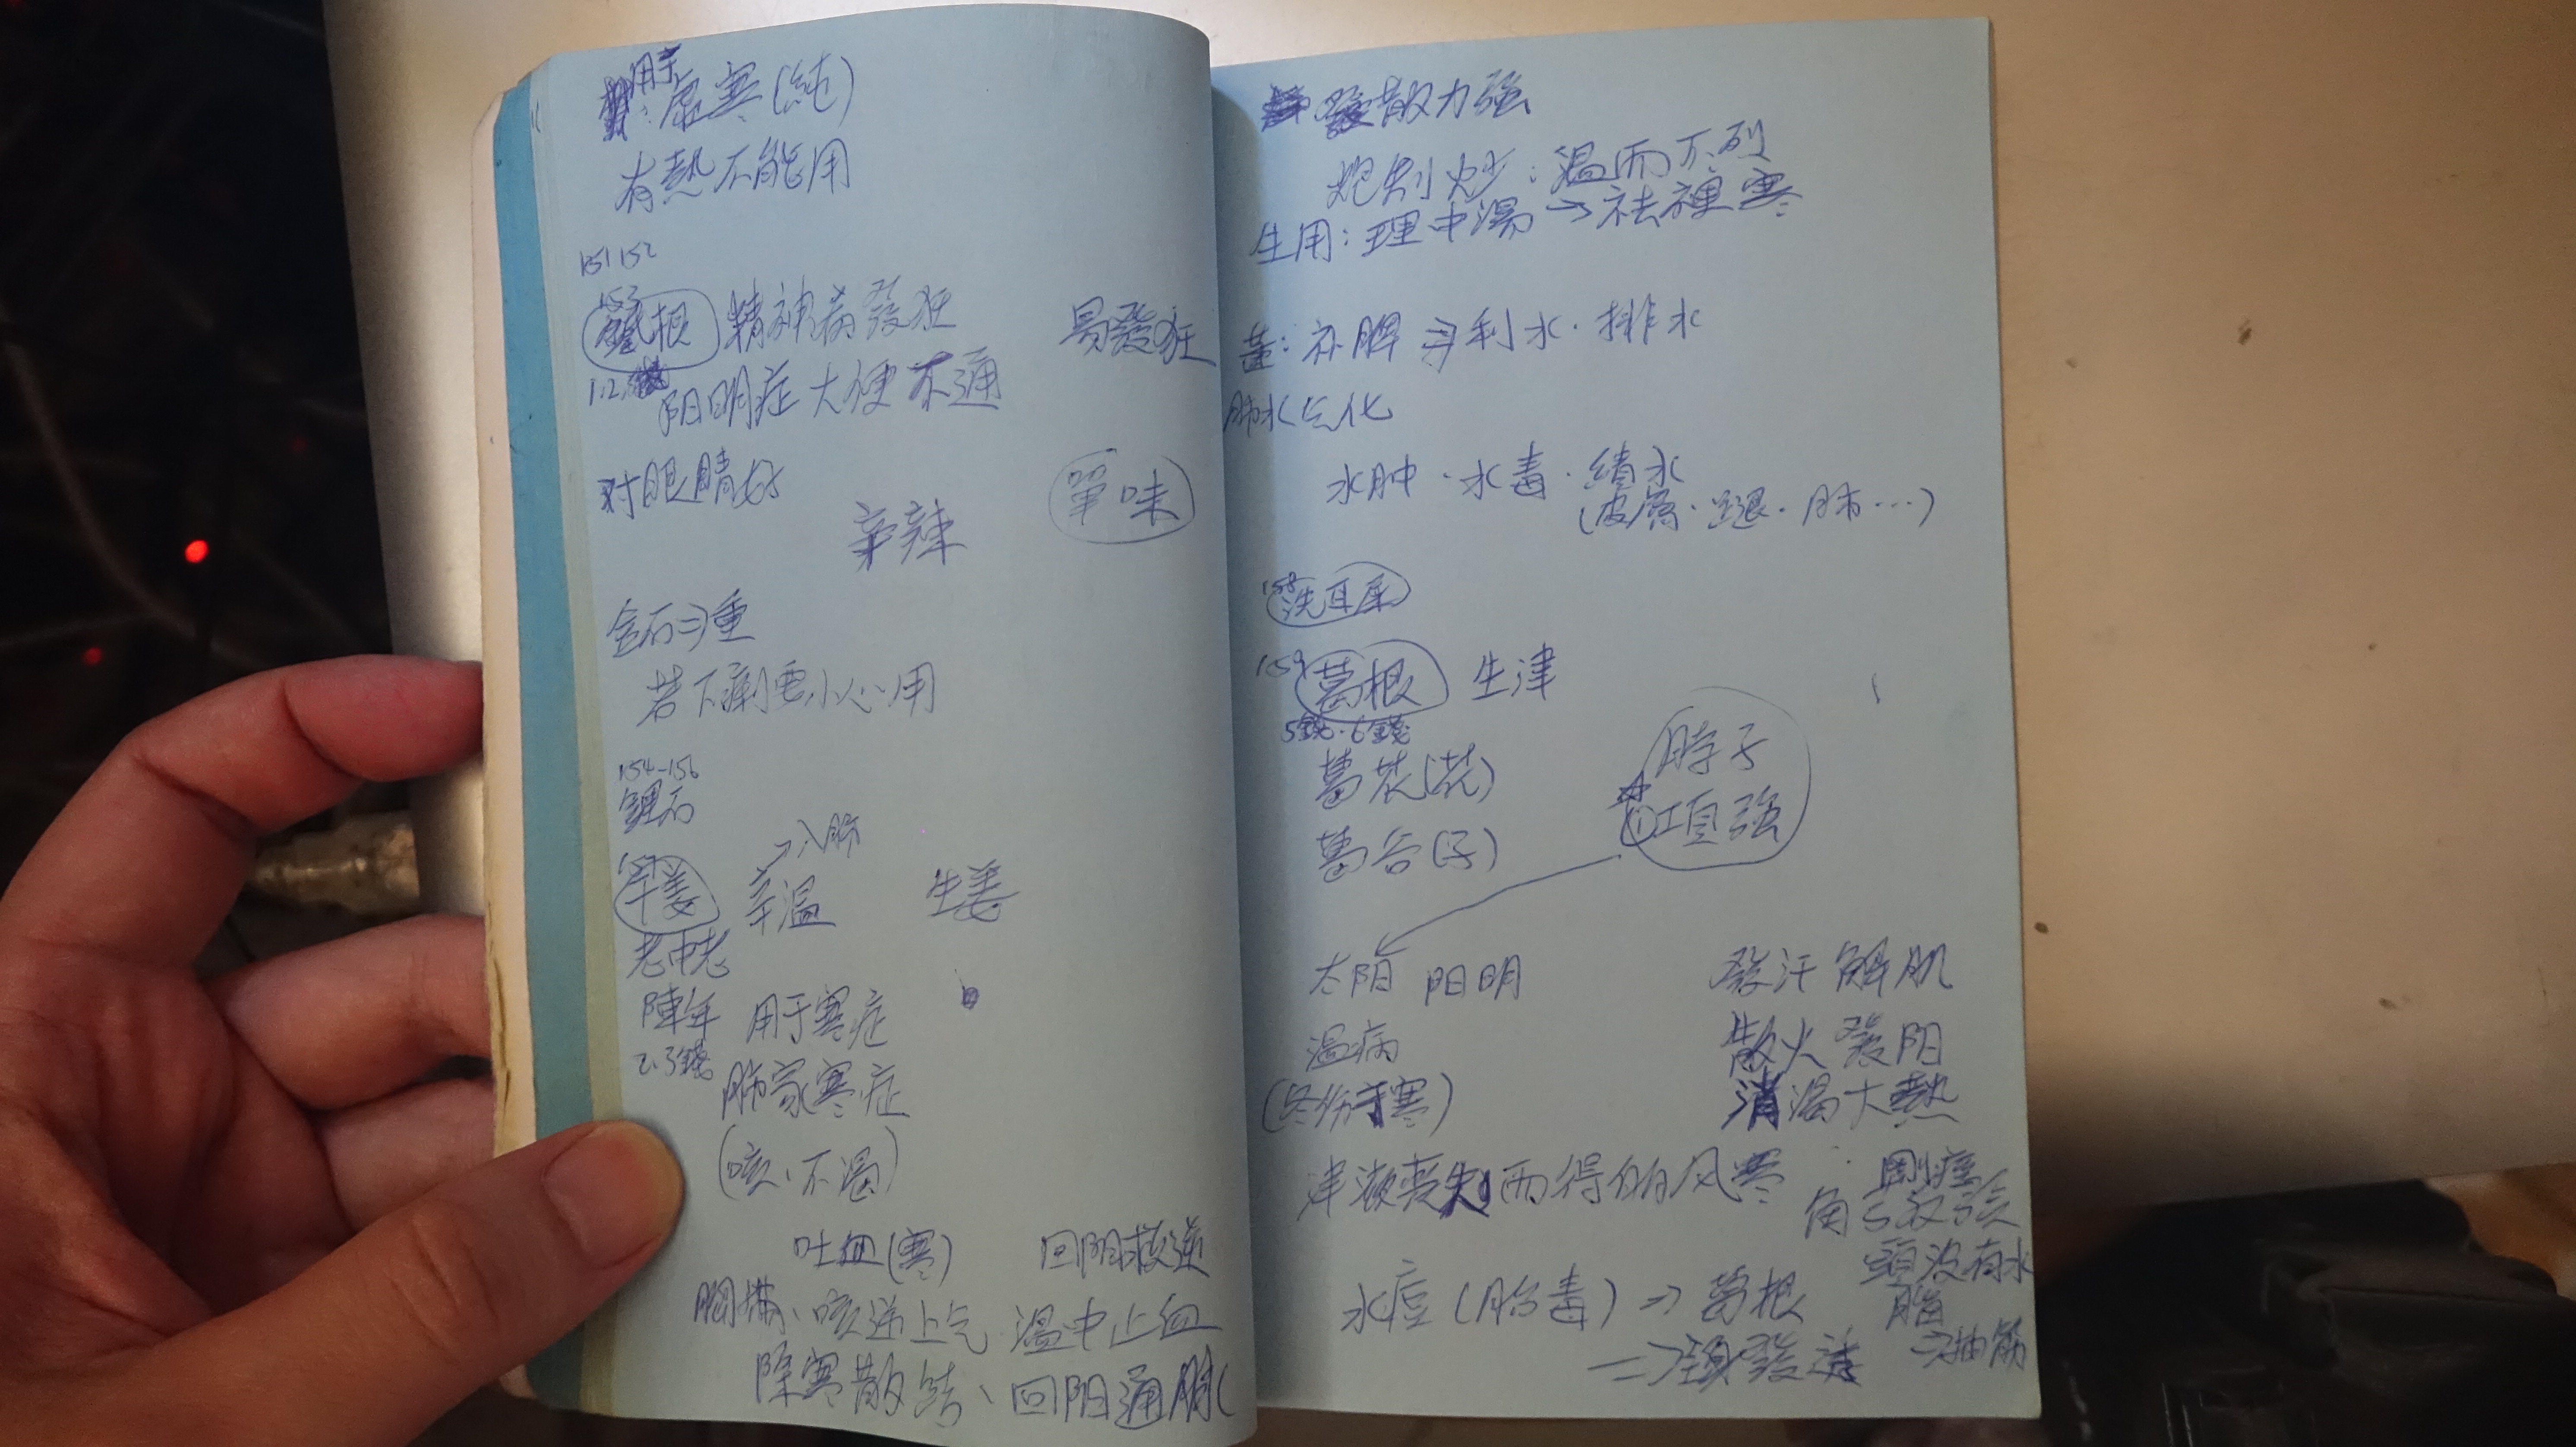 用于
虛寒(純)
有熱不能用
151 152
153
根 精神病發狂 易發狂
1.2 阳明症 大便不通
对眼睛好 單味
辛辣
金石⇒重
若下痢要小心用
154-156
鋰石
→入肺
干姜 辛温 生姜
老中老
陳年 用于寒症
2.3錢 肺家寒症
(咳、不渴)
吐血(寒) 回阳救逆
胸满、咳逆上气 温中止血
除寒散结、回阳通脉
發散力強
炮制炒:温而不列
生用:理中湯→祛裡寒
薑:补脾 利水.排水
肺水气化
水肿.水毒.積水
(皮膚.腿.肺...)
158
洗耳尿
159
葛根 生津
5錢.6錢
葛花(花)
葛谷(子)
脖子
①項強
太阳 阳明 發汗解肌
温病 散火 發阳
(冬伤于寒) 消渴大熱
津液丧失而得的风寒 剛痙
角弓反張
頭没有水
水痘(胎毒)⇒葛根 脑
⇒抽筋
⇒ 發